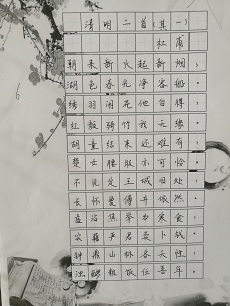 清明二首(其一)
杜甫
朝来新火起新烟，
湖色春光净客船。
绣羽闲花他自得，
红颜骑竹我无缘。
胡童结束还难有，
楚女腰肢亦可怜。
不见定王城旧处，
长怀贾傅井依然。
虚沾焦举为寒食，
实藉严君卖卜钱。
钟鼎山林各天性，
浊醪粗饭任吾年。